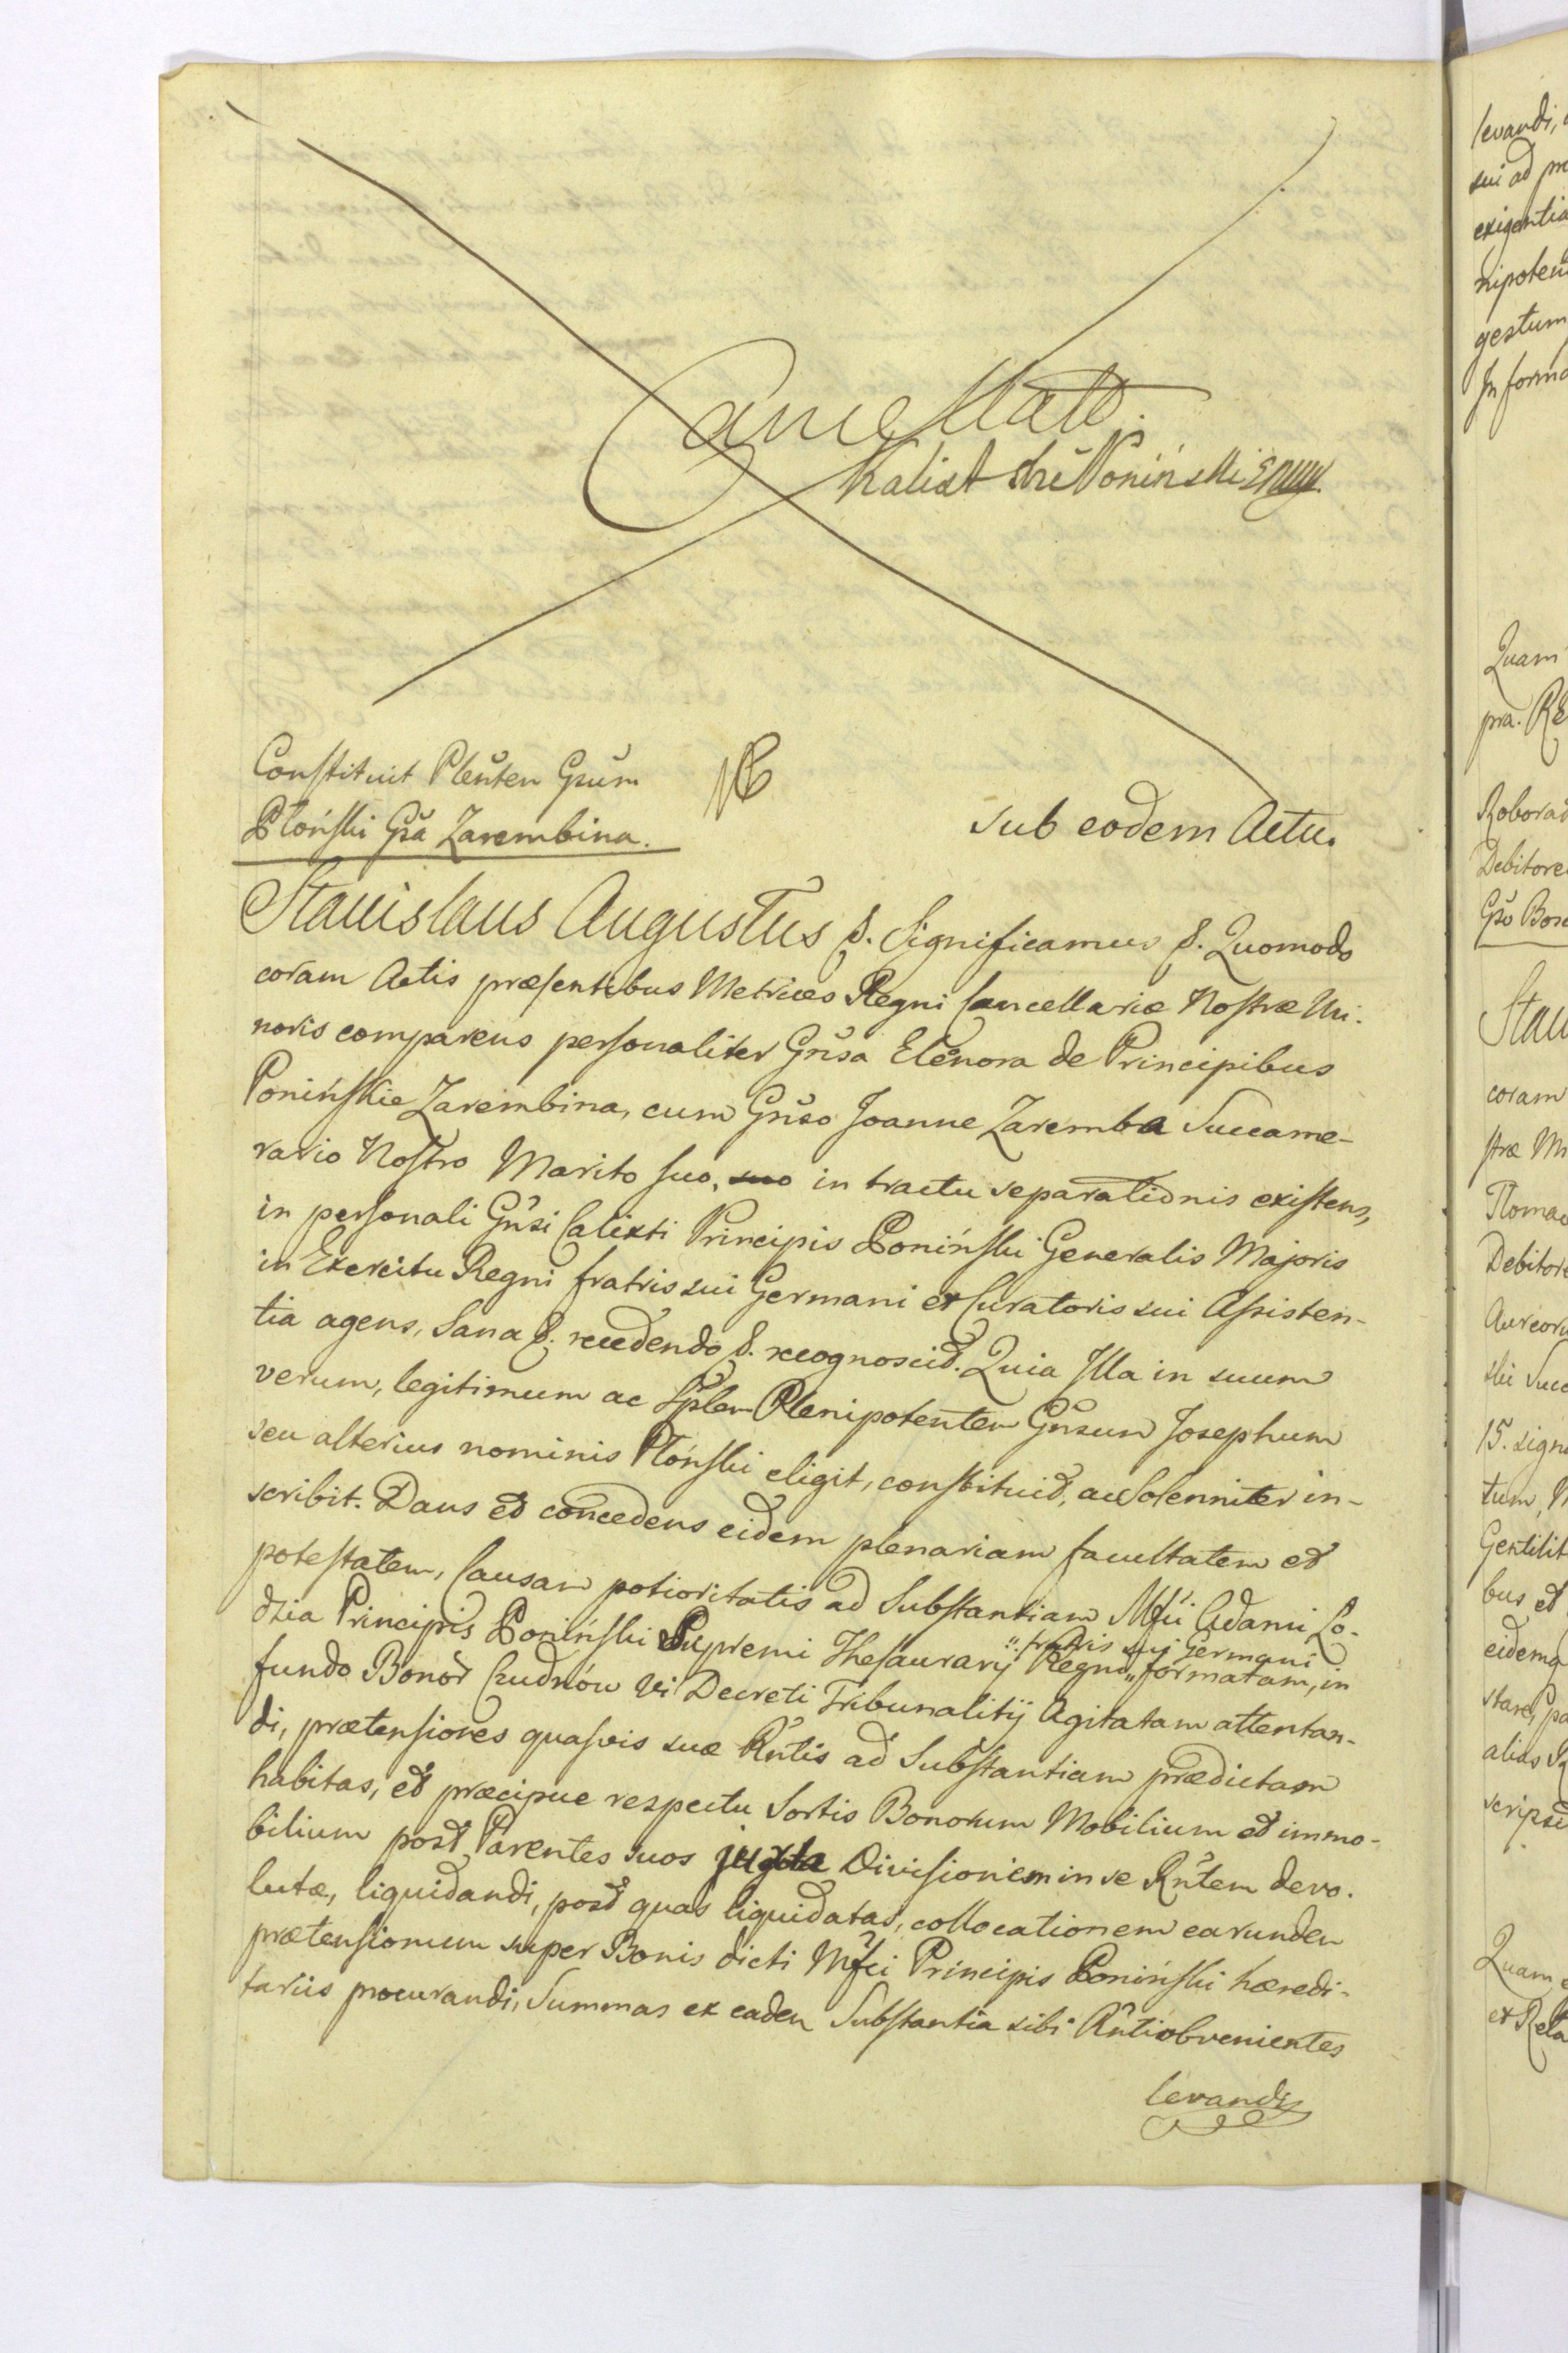 Cancellatt.
Kalixt Poniński
Constituit Pleñten Gsum
Płoński Gsa Zarembina.
NB
Sub eodem Actu.
Stanislaus Augustus &. Significamus &. Quomodo
coram Actis præsentibus Metrices Regni Cancellariæ Nostræ Mi-
noris comparens personaliter Gnsa Elenora de Principibus
Ponińskie Zarembina, cum Gnso Joanne Zaremba Succame-
rario Nostro Marito suo, in tractu separationis existens,
in personali Gnsi Calixti Principis Poniński Generalis Majoris
in Exercitu Regni fratris sui Germani et Curatoris sui Assisten-
tia agens, Sana &. recedendo &. recognoscit. Quia Illa in suum
verum, legitimum ac Splem Plenipotentem Gnsum Josephum
seu alterius nominis Płoński eligit, constituit, ac Solenniter in-
scribit. Dans et concedens eidem plenariam facultatem et
potestatem, Causam potioritatis ad Substantiam Mfci Adami Lo-
dzia Principis Poniński Supremi Thesaurarij Regni „ formatam, in
„ fratris sui Germani
fundo Bonor Cudnów vi Decreti Tribunalitij Agitatam attentan-
di, prætensiones quasvis suæ Rntis ad Substantiam prædictam
habitas, et præcipue respectu Sortis Bonorum Mobilium et immo-
bilium post Parentes suos juxta Divisionem in se Rntem devo-
lutæ, liquidandi, post quas liquidatas, collocationem earunden
prætensionum super Bonis dicti Mfci Principis Poniński hæredi-
tariis procurandi, Summas ex eaden Substantia sibi Rnti obvenientes
levandi
levandi,
sui ad
exigentia
nipoten
gestum
In forma
Quam
pra.
Roborat
Debitore
Gso
Stan
coram
stræ Mi
Debitor
15. sign
tum,
Gentilit
bus et
eidemq
alias
Quam